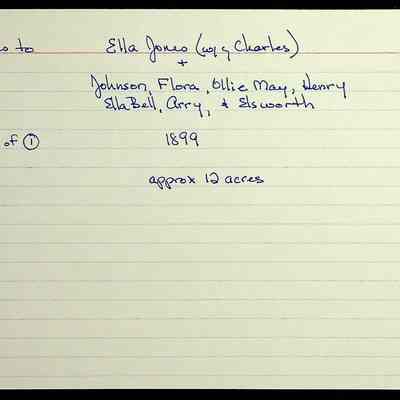 to Ella Jones (w/of Charles)
+
Johnson, Flora, Ollie May, Henry
EllaBell, Arry, & Elsworth
of ① 1899
approx 12 acres